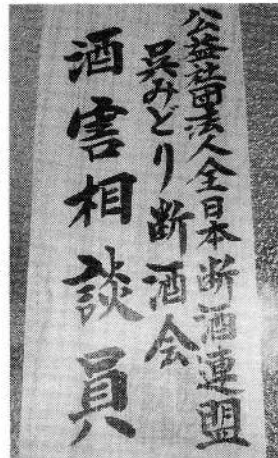 公益社団法人全日本断酒連盟
呉みどり断酒会
酒害相談員